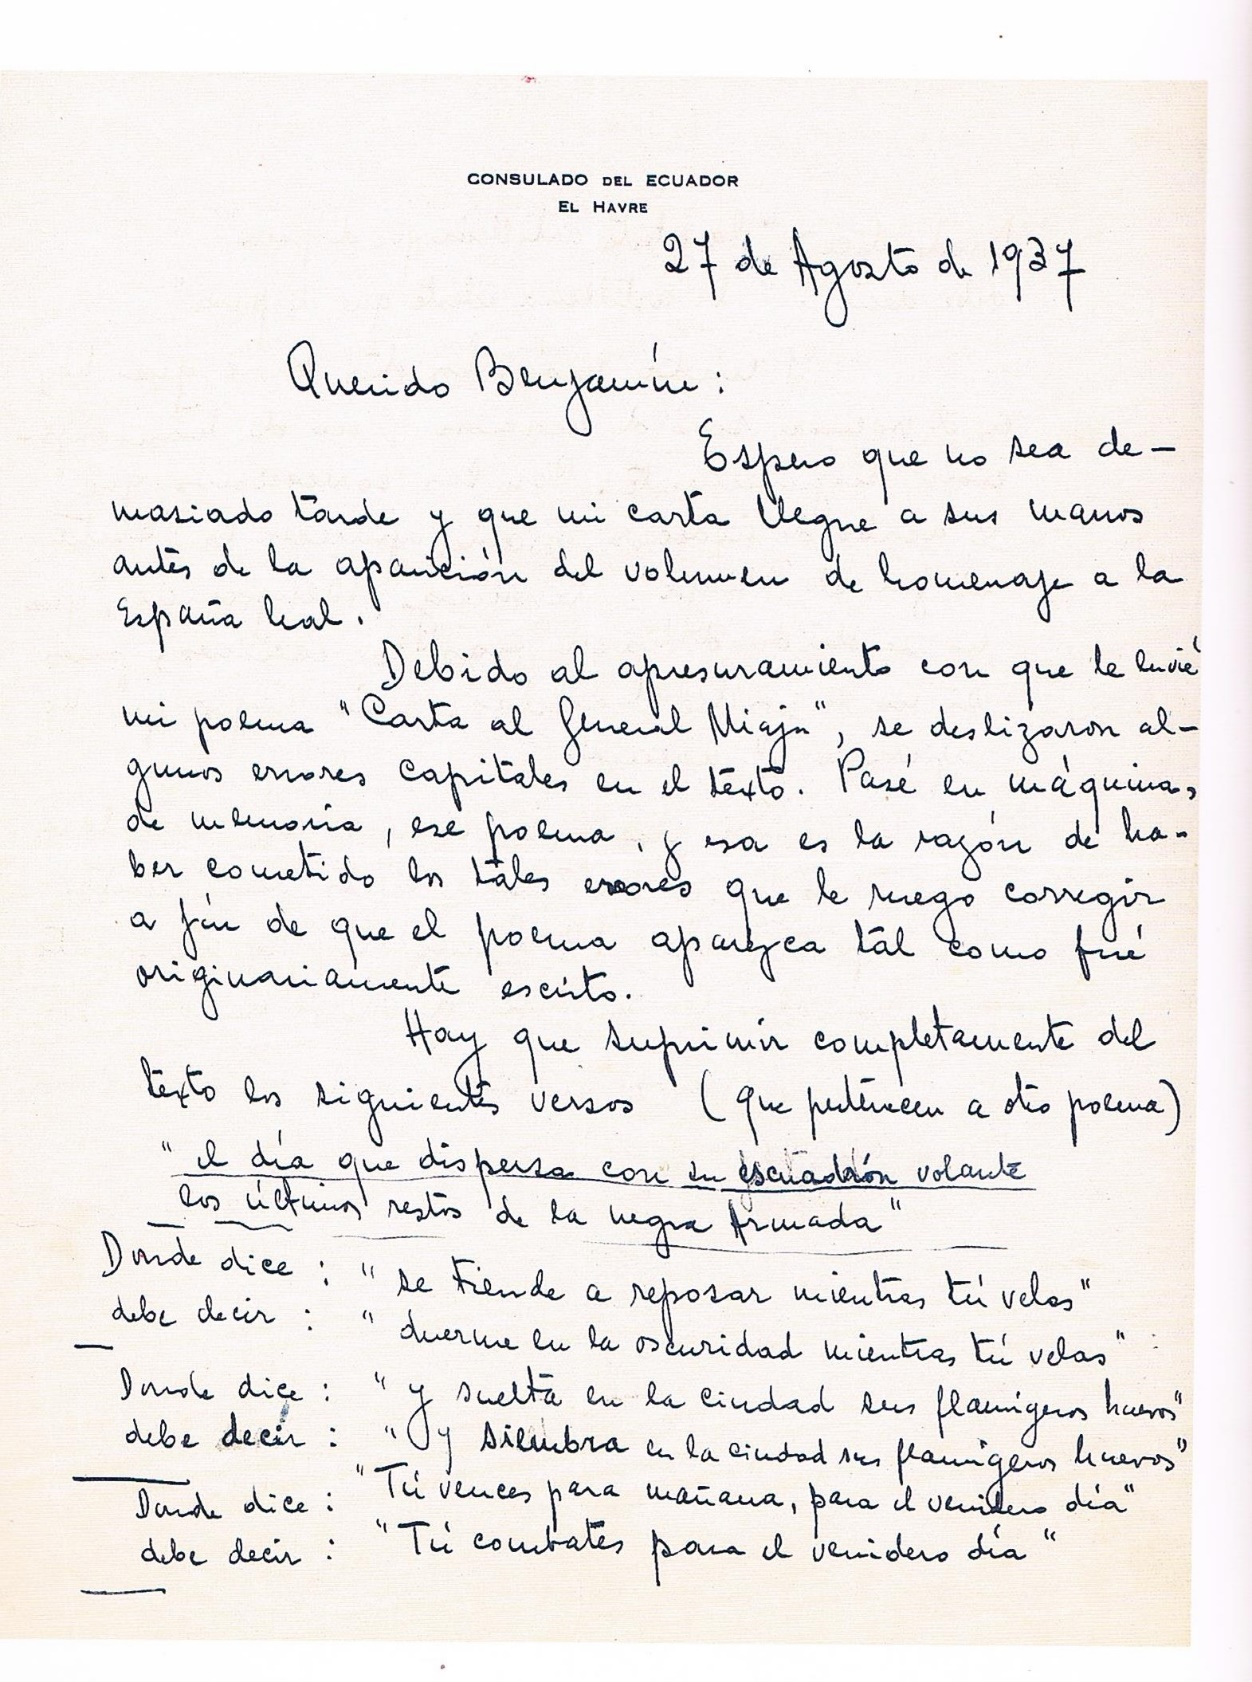 CONSULADO DEL ECUADOR
EL HAVRE
27 de Agosto de 1937
Querido Benjamín:
Espero que no sea de-
masiado tarde y que mi carta llegue a sus manos
antes de la aparición del volumen de homenaje a la
España leal.
Debido al apresuramiento con que le envié
mi poema "Carta al General Miaja", se deslizaron al-
gunos errores capitales en el texto. Pasé en máquina,
de memoria, ese poema, y esa es la razón de ha-
ber cometido los tales errores que le ruego corregir
a fín de que el poema aparezca tál como fué
originariamente escrito.
Hay que suprimir completamente del
texto los siguientes versos (que pertenecen a otro poema)
"el día que dispersa con su escuadrón volante
los últimos restos de la negra Armada"
Donde dice: "se tiende a reposar mientras tú velas"
debe decir: "duerme en la oscuridad mientras tú velas"
Donde dice: "y suelta en la ciudad sus flamígeros huevos"
debe decir: "y siembra en la ciudad sus flamígeros huevos"
Donde dice: "Tú vences para mañana, para el venidero día"
debe decir: "Tú combates para el venidero día"